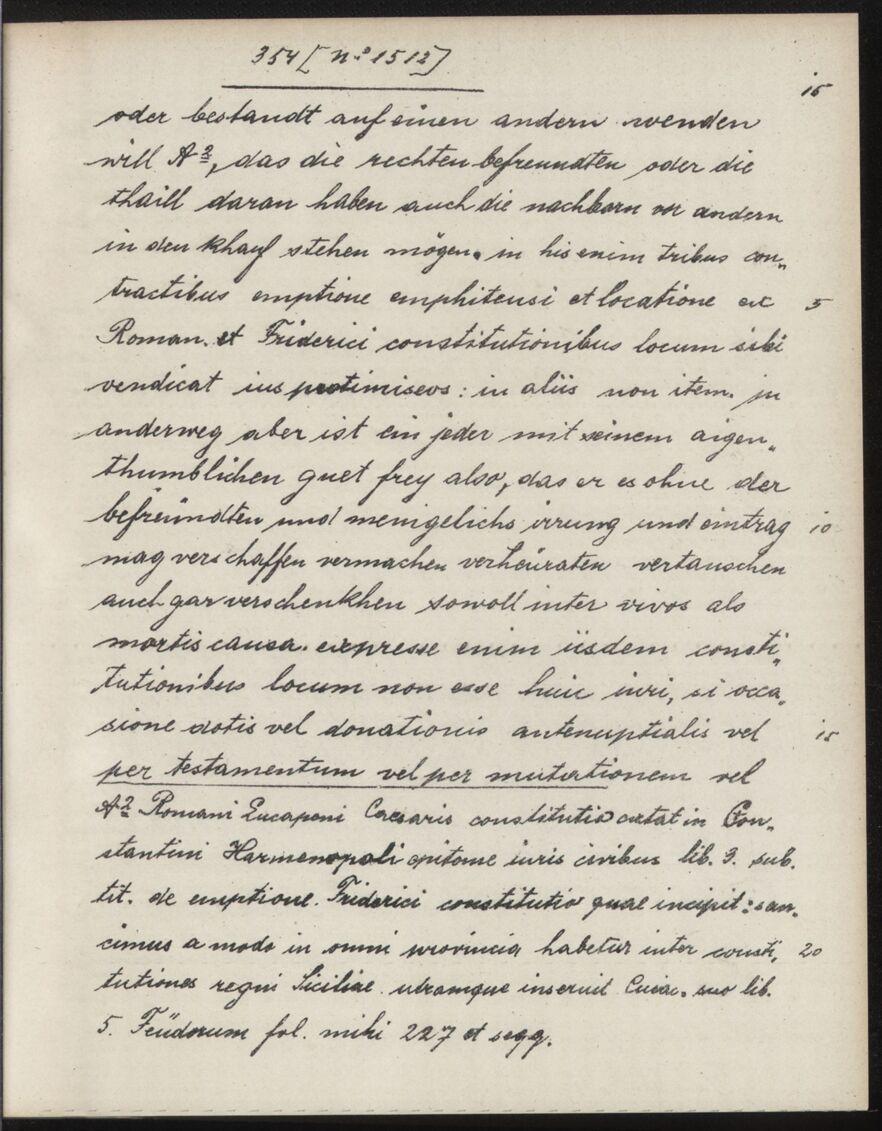 354 [n.o 1512]
15
oder bestandt auf einen andern wenden
will A 2, das die rechten befreundten oder die
thaill daran haben auch die nachbarn vor andern
in den khauf stehen mögen. in his enim tribus con„
tractibus emptione emphiteusi et locatione ex 5
Roman. et Friderici constitutionibus locum sibi
vendicat ius protimiseos: in aliis non item. in
anderweg aber ist ein jeder mit seinem aigen„
thumblichen guet frey also, das er es ohne der
befreündten und menigelichs irrung und eintrag 10
mag verschaffen vermachen verheüraten vertauschen
auch gar verschenkhen sowoll inter vivos als
mortis causa. expresse enim iisdem consti„
tutionibus locum non esse huic iuri, si occa„
sione dotis vel donationis antenuptialis vel 15
per testamentum vel per mutationem vel
A 2 Romani Lucapeni Caesaris constitutio extat in Con„
stantini Harmenopoli epitome iuris civibus lib. 3. sub.
tit. de emptione. Friderici constitutio quae incipit: san„
cimus a modo in omni provincia habetur inter consti„ 20
tutiones regni Siciliae. utramque inseruit Cuiac. suo lib.
5. Feüdorum fol. mihi 227 et seqq.